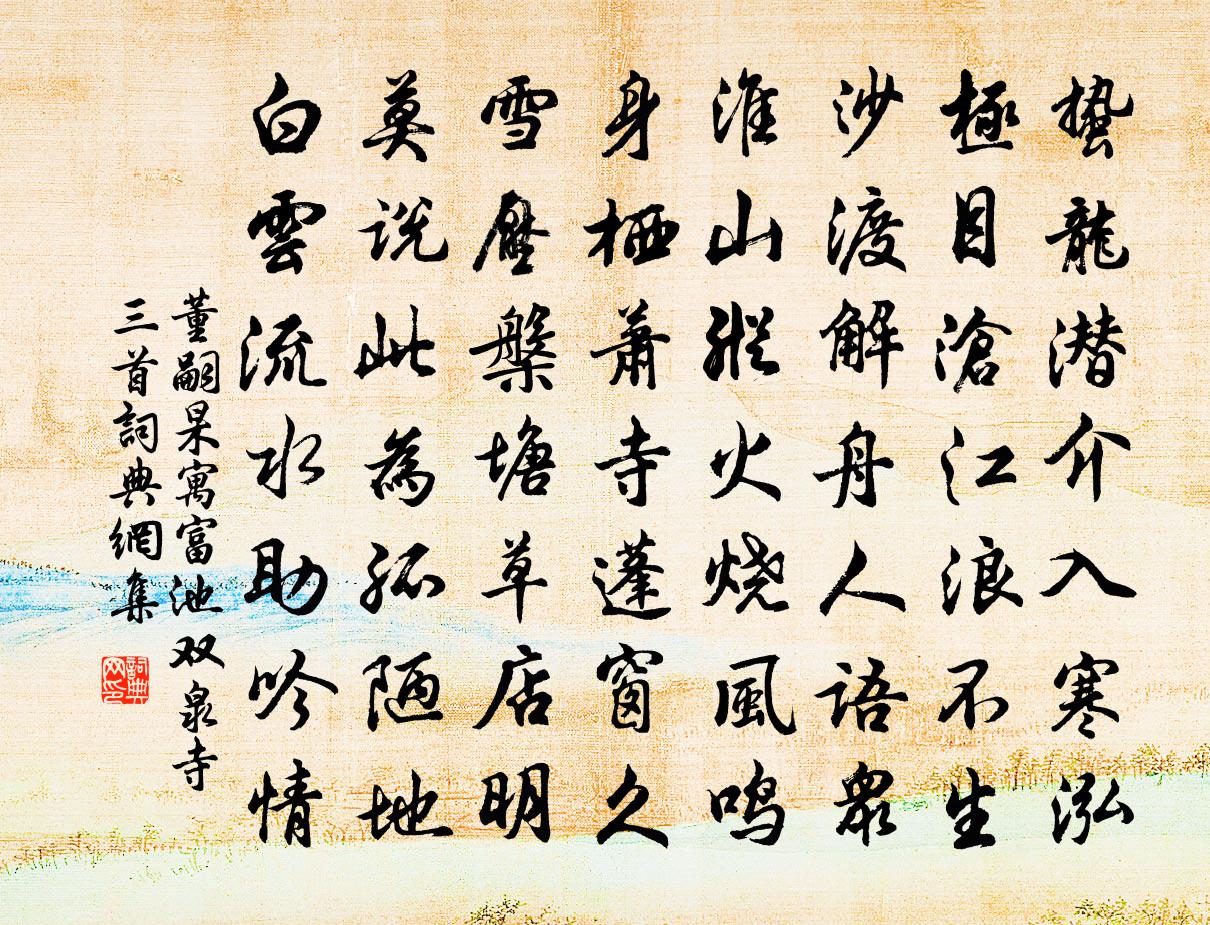 蟄龍潜介入寒泓
極目滄江浪不生
沙渡解舟人語衆
淮山縱火烧風鳴
身栖蕭寺蓬窗久
雪壓槃塘草店明
莫说此為孤陋地
白雲流水助吟情
董嗣杲寓富池双泉寺
三首詞典網集
詞典
网印